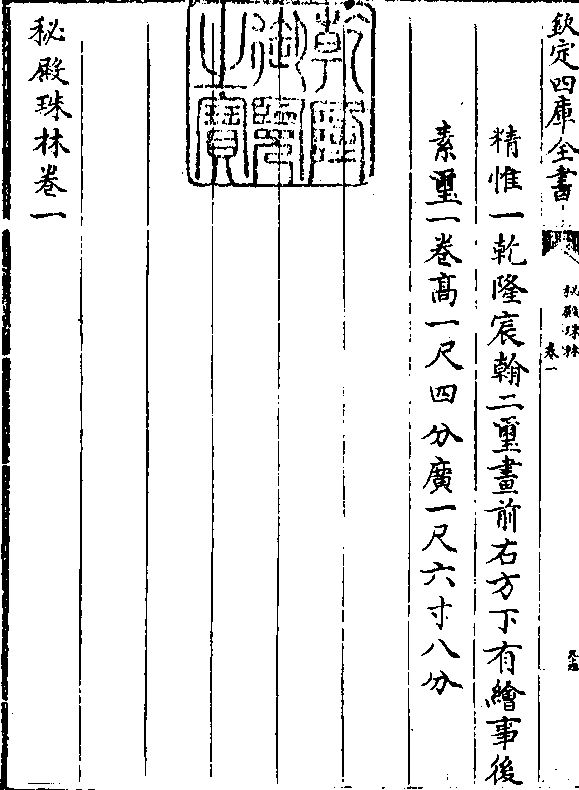 欽定四庫全書
秘殿珠林
卷一
精惟一乾隆宸翰二璽畫前右方下有繪事後
素璽一卷髙一尺四分廣一尺六寸八分
乾隆
御覽
之寶
秘殿珠林卷一